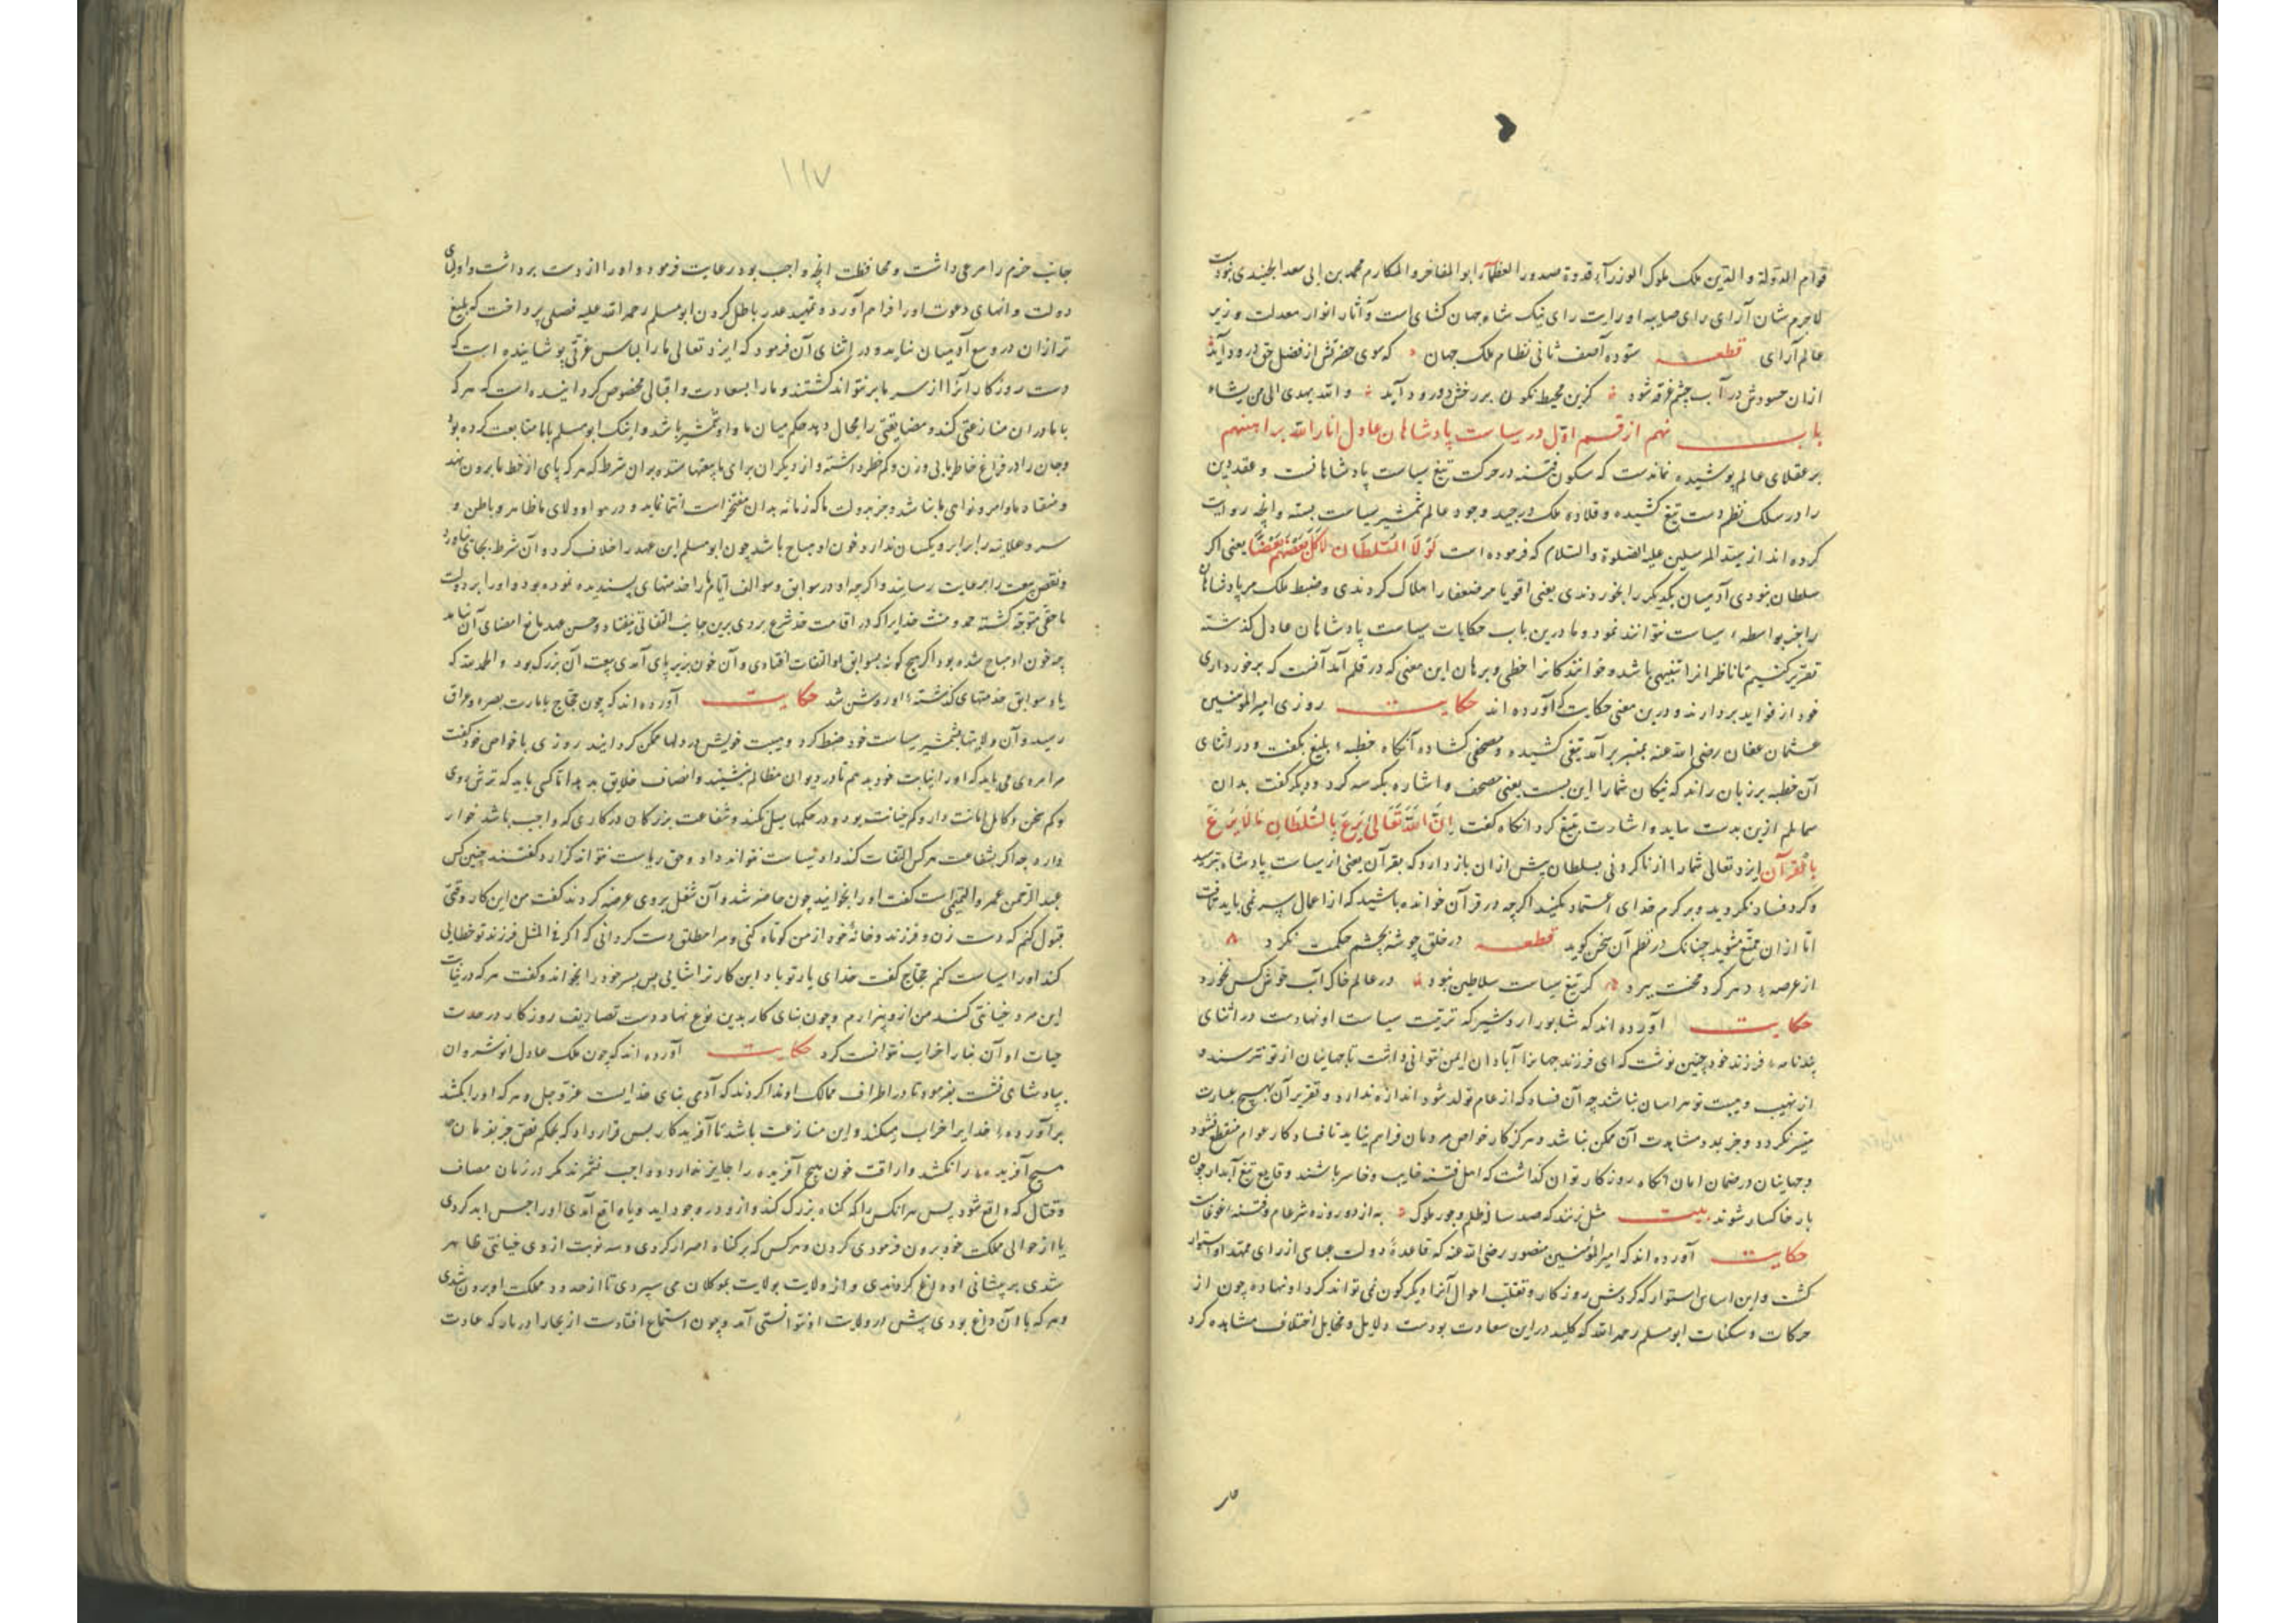 قوام الدولة والدین ملک ملوک الوزرآء قدوة صدور العظمآء ابو المفاخر والمکارم محمد بن ابی سعد الجنیدی بودست
لاجرم شان آرای رای صایبه او رایت رای نیک شاه جهان کشای است و آثار انوار معدلت وزیر
عالم آرای قطعه ستوده آصف ثانی نظام ملک جهان که سوی حضرتش از فضل حق درود آید
ازان حسودش در آب چشم غرقه شود کزین محیط نکون بر رخش دو رود آید والله یهدی الی من یشاء
باب نهم از قسم اول در سیاست پادشاهان عادل انار الله براهینهم
بر عقلای عالم پوشیده نماندست که سکون فتنه در حرکت تیغ سیاست پادشاهانست و عقد دین
را در سلک نظم دست تیغ کشیده و قلاده ملک در جید وجود عالم شمشیر سیاست بسته و انچه روایت
کرده اند از سید المرسلین علیه الصلوة والسلام که فرموده است لولا السلطان لاکل بعضهم بعضا یعنی اکر
سلطان نبودی آدمیان یکدیکر را بخوردندی یعنی اقویا مر ضعفا را هلاک کردندی و ضبط ملک مر پادشاهان
را جز بواسطه سیاست نتوانند نمود و ما درین باب حکایات سیاست پادشاهان عادل کذشته
تقریر کنیم تا ناظرانرا تنبیهی باشد و خوانندکانرا حظی و برهان این معنی که در قلم آمد آنست که برخورداری
خود از فواید بردارند و درین معنی حکایت که آورده اند حکایت روزی امیر المومنین
عثمان عفان رضی الله عنه بمنبر برآمد تیغی کشیده و مصحفی کشاده آنکاه خطبه بلیغ بکفت و در اثنای
آن خطبه بر زبان راند که نیکان شما را این بست یعنی مصحف و اشاره بکراسه کرد و دیکر کفت بدان
معاملم ازین بدست ماید و اشارت بتیغ کرد انکاه کفت ان الله تعالی یزع بالسلطان ما لا یزع
بالقرآن ایزد تعالی شما را از ناکردنی بسلطان بیش ازان باز دارد که بقرآن یعنی از سیاست پادشاه بترسید
و کرد فساد نکردید و بر کرم خدای اعتماد بکنید اکرچه در قرآن خوانده باشید که از اعمال سر نمی باید تافت
اما ازان ممتنع مشوید چنانک در نظم آن سخن کوید قطعه در خلق چو شه بچشم حکمت نکرد
از عرصه دهر کرد محنت ببرد کر تیغ سیاست سلاطین نبود در عالم خاک آب خوش کس نخورد
حکایت آورده اند که شابور اردشیر که ترتیب سیاست او نهادست در اثنای
پندنامه فرزند خود چنین نوشت که ای فرزند جهانرا آبادان ایمن نتوانی داشت تا جهانیان از تو نترسند و
از نهیب و هیبت تو هراسان نباشد چه آن فساد که از عام تولد شود اندازه ندارد و تقریر آن بهیچ عبارت
میسر نکردد و جز بد مشاهدت آن ممکن نباشد و هرکز کار خواص مردمان فراهم نیاید تا فساد کار عوام منقطع نشود
و جهانیان در ضمان امان انکاه روزکار توان کذاشت که اهل فتنه خایب و خاسر باشند و قایع تیغ آبدار چون
باد خاکسار شوند بیت مثل زنند که صد ساله ظلم و جور ملوک به از دو روزه شر عام و فتنه غوغاست
حکایت آورده اند که امیر المؤمنین منصور رضی الله عنه که قاعدهٔ دولت عباسی از رای ممهد او استوار
کشت و این اساس استوار که کردش روزکار و تقلب احوال آنرا دیکرکون نمی تواند کرد او نهاده چون از
حرکات و سکنات ابو مسلم رحمه الله که کلید در این سعادت بودست دلایل و مخایل اختلاف مشاهده کرد
۱۱۷
جانب حزم را مرعی داشت و محافظت انچه واجب بود رعایت فرمود و او را از دست برداشت و اولیای
دولت و انهای دعوت او را فراهم آورد و تمهید عذر باطل کردن ابو مسلم رحمه الله علیه فصلی پرداخت که بلیغ
تر ازان در وسع آدمیان نیاید و در اثنای آن فرمود که ایزد تعالی ما را لباس عزتی پوشانیده است که
دست روزکار آنرا از سر ما بر نتواند کشتند و ما را بسعادت و اقبالی مخصوص کردانیده است که هر که
با ما دران منازعتی کند و مضایقتی را مجال دهد حکم میان ما و او شمشیر باشد و اینک ابو مسلم با ما متابعت کرده بود
و جان را در فراغ خاطر ما بی وزن و کم خطر داشته و از دیکران برای ما بیعتها ستده بران شرط که هر که پای از خط ما برون نهد
و منقاد ما و امر و نواهی ما نباشد و جز بدولت ما که زمانه بدان مفتخر است انتما نماید و در هوا و ولای ما ظاهر و باطن و
سر و علانیه را برابر و یکسان ندارد و خون او مباح باشد چون ابو مسلم این عهد را خلاف کرد و آن شرط بجای نیاورد
و نقض بیعت را برعایت رسانید و اکرچه او در سوابق و سوالف ایام ما را خدمتهای پسندیده نموده بود و او را بر دولت
ما حقی متوجه کشته حمد و منت خدایرا که در اقامت حد شرع بر وی برین جانب التفاتی نیفتاد و حسن عهد مانع امضای آن نیامد
چه خون او مباح شده بود اکر هیچ کونه بسوابق او التفات افتادی و آن خون بزیر پای آمدی بیعت آن بزرک بود و الحمد لله که
یاد سوابق خدمتهای کذشته او روشن شد حکایت آورده اند که چون حجاج بامارت بصره و عراق
رسید و آن ولایتها بشمشیر سیاست خود ضبط کرد و هیبت خویش در دلها ممکن کردانید روزی با خواص خود کفت
مرا مردی می باید که او را نیابت خود بدهم تا در دیوان مظالم بنشیند و انصاف خلایق بدهد اما کسی باید که ترش روی
و کم سخن و کامل امانت دار و کم خیانت بود و در حکمها میل نکند و شفاعت بزرکان در کاری که واجب باشد خوار
دارد چه اکر بشفاعت هر کس التفات کند داد سیاست نتواند داد و حق ریاست نتواند کزارد کفتند چنین کس
عبد الرحمن عمرو التمیمی است کفت او را بخوانید چون حاضر شد و آن شغل بر وی عرضه کردند کفت من این کار وقتی
قبول کنم که دست زن و فرزند و خانهٔ خود از من کوتاه کنی و مرا مطلق دست کردانی که اکر فی المثل فرزند تو خطایی
کند او را سیاست کنم حجاج کفت خدای یار تو باد این کار ترا شایی پس پسر خود را بخواند و کفت هر که در نیابت
این مرد خیانتی کند من ازو بیزارم و چون بنای کار بدین نوع نهاد دست تصاریف روزکار در مدت
حیات او آن بنا را خراب نتوانست کرد حکایت آورده اند که چون ملک عادل انوشروان
بپادشاهی نشست بفرمود تا در اطراف ممالک او ندا کردند که آدمی بنای خدایست عز و جل و هر که او را بکشد
برآورده خدایرا خراب میکند و این منازعت باشد با آفریدکار پس قرار داد که بحکم نص جز بفرمان
هیچ آفریده را نکشد و اراقت خون هیچ آفریده را جایز ندارد و واجب نشمرند مکر در زمان مصاف
و قتال که واقع شود پس هر انکس را که کناه بزرک کند و از و در وجود اید و یا واقع آمدی او را حبس ابد کردی
یا از حوالی مملکت خود برون فرمودی کردن و هر کس که بر کناه اصرار کردی و سه نوبت از وی خیانتی ظاهر
شدی بر پیشانی او داغ کردندی و از ولایت بولایت بموکلان می سپردی تا از حدود مملکت او برون شدی
و هر که با آن داغ بودی پیش در ولایت او نتوانستی آمد و چون استماع افتادست از بحار او رباد که عادت